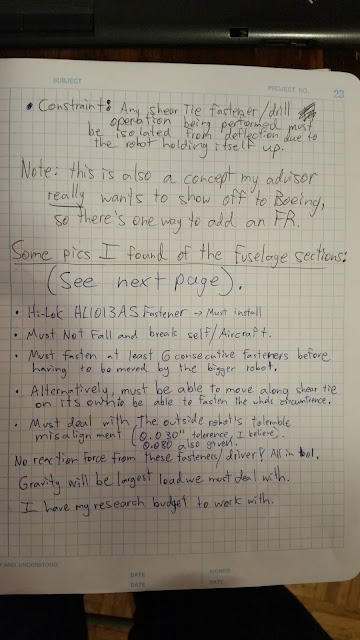 SUBJECT
PROJECT NO.
23
• Constraint: Any shear Tie fastener/drill
operation being performed must
be isolated from deflection due to
the robot holding itself up.
Note: this is also a concept my advisor
really wants to show off to Boeing,
so there's one way to add an FR.
Some pics I found of the fuselage sections:
(See next page).
• Hi-Lok HL1013AS Fastener → Must install
• Must Not Fall and break self/Aircraft.
• Must fasten at least 6 consecutive fasteners before
having to be moved by the bigger robot.
• Alternatively, must be able to move along shear tie
on its own to be able to fasten the whole circumfrence.
• Must deal with The outside robot's tolerable
misalignment (0.030" tolerence, I believe).
0.080 also given.
No reaction force from these fasteners/driver! All in tool.
Gravity will be largest load we must deal with.
I have my research budget to work with.
AND UNDERSTOOD
DATE
SIGNED
DATE
DATE